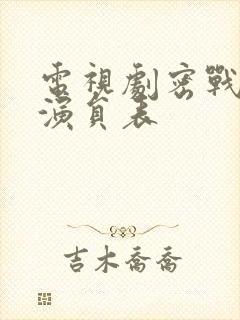 電視劇密戰
演員表
吉木喬喬